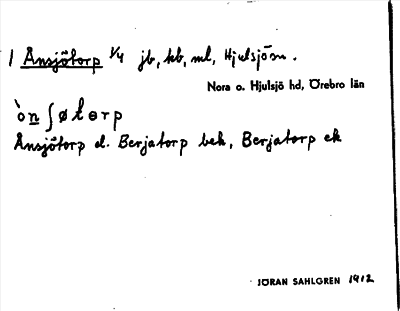 1 Ånsjötorp 1/4 jb, kb, ml, Hjulsjö sn.
Nora o. Hjulsjö hd, Örebro län
ònʃøtɵrp
Ånsjötorp el. Berjatorp bek, Berjatorp ek
JÖRAN SAHLGREN 1912